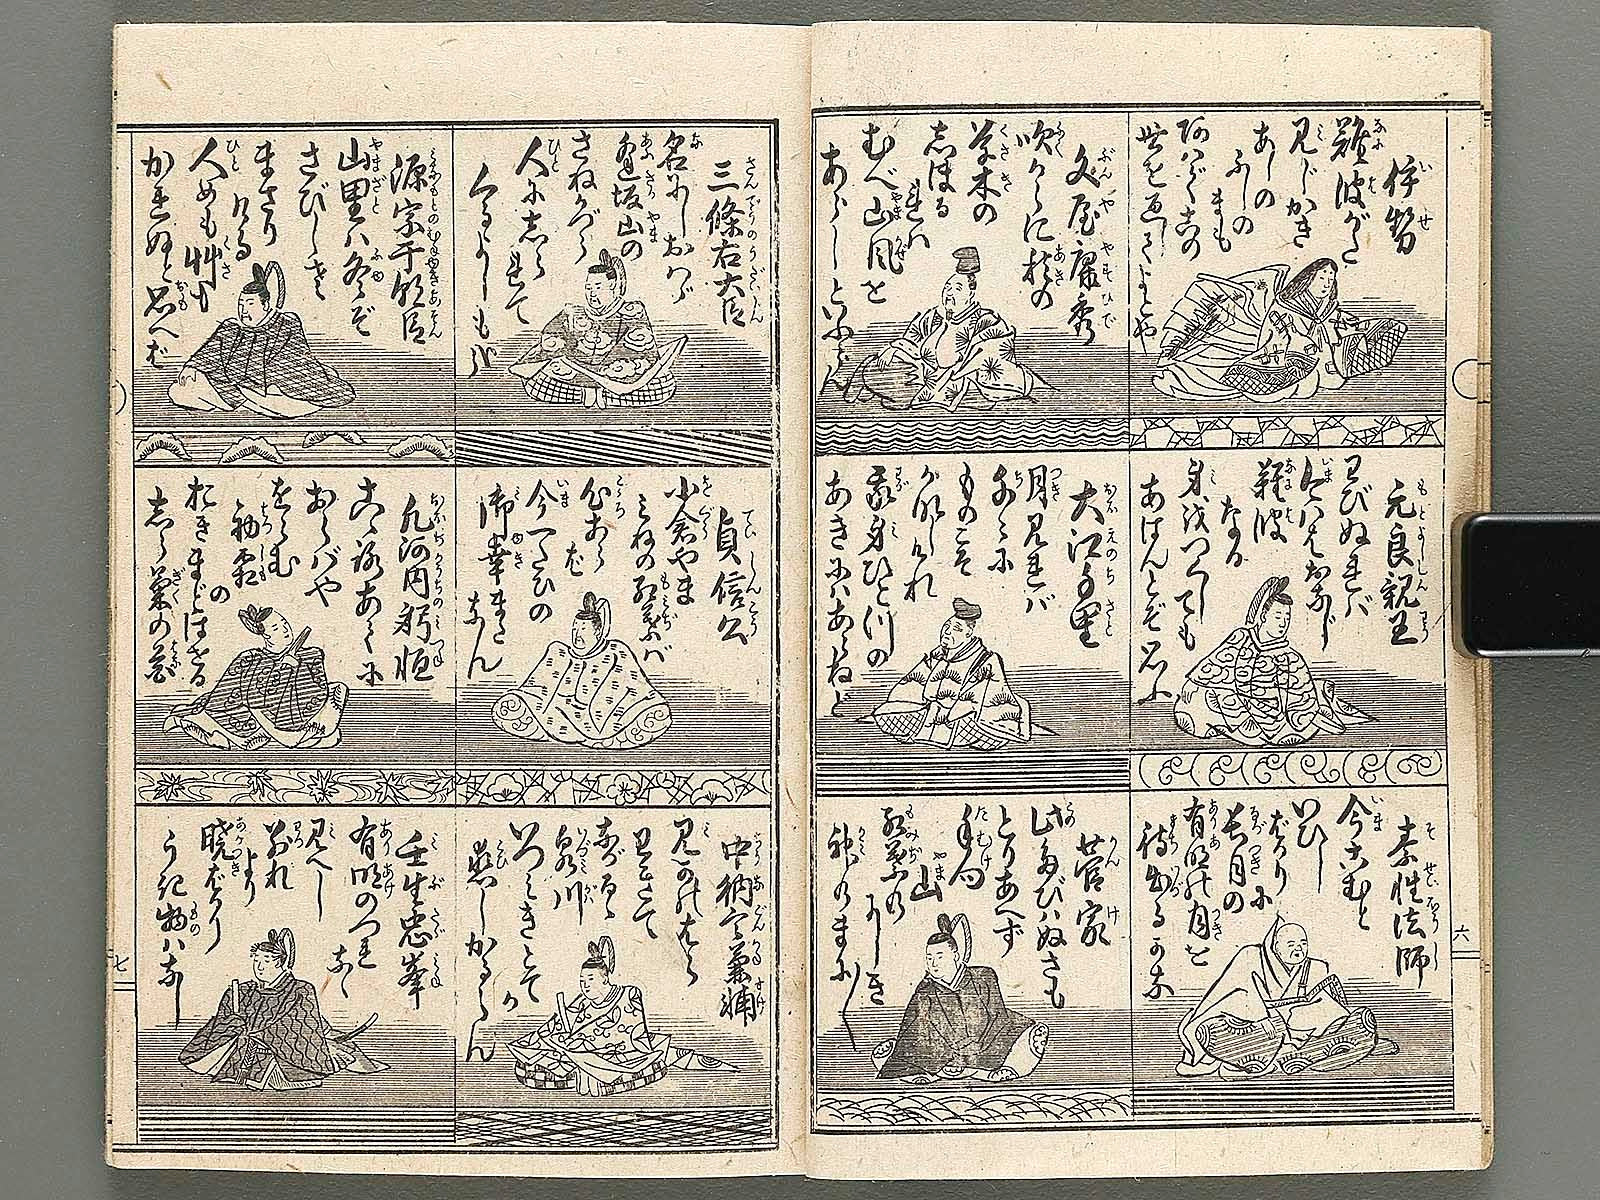 伊勢
難波がた
見じかき
あしの
ふしの
まも
あハでこの
世を過してよとや
元良親王
わびぬれバ
今ハたおなじ
難波
なる
身をつくしても
あはんとぞ思ふ
素性法師
今こむと
いひし
ばかりに
長月の
有明の月を
待出るかな
文屋康秀
吹からに秋の
草木の
志ほる
れハ
むべ山風を
あらしといふらん
大江千里
月見れバ
千々に
ものこそ
かなしけれ
我身ひとつの
あきにハあらねど
菅家
此たびハぬさも
とりあへず
手向
山
紅葉の
にしき
神のまに〱
三條右大臣
名にしおハヾ
逢坂山の
さねかづら
人に志ら
れて
くるよしもがな
貞信公
小倉やま
みねの紅葉バ
心あらバ
今一たひの
御幸またなん
中納言兼輔
見かの原
わきて
ながるゝ
泉川
いつみきとて
か
恋しかるらん
源宗于朝臣
山里ハ冬ぞ
さびしさ
まさり
ける
人めも艸も
かれぬと思へば
凡河内躬恒
心あてに
おらバや
おらむ
初霜
の
おきまどはせる
志ら菊の花
壬生忠岑
有明のつれ
なく
見へし
別れ
より
暁ばかり
うき物ハなし
六
七